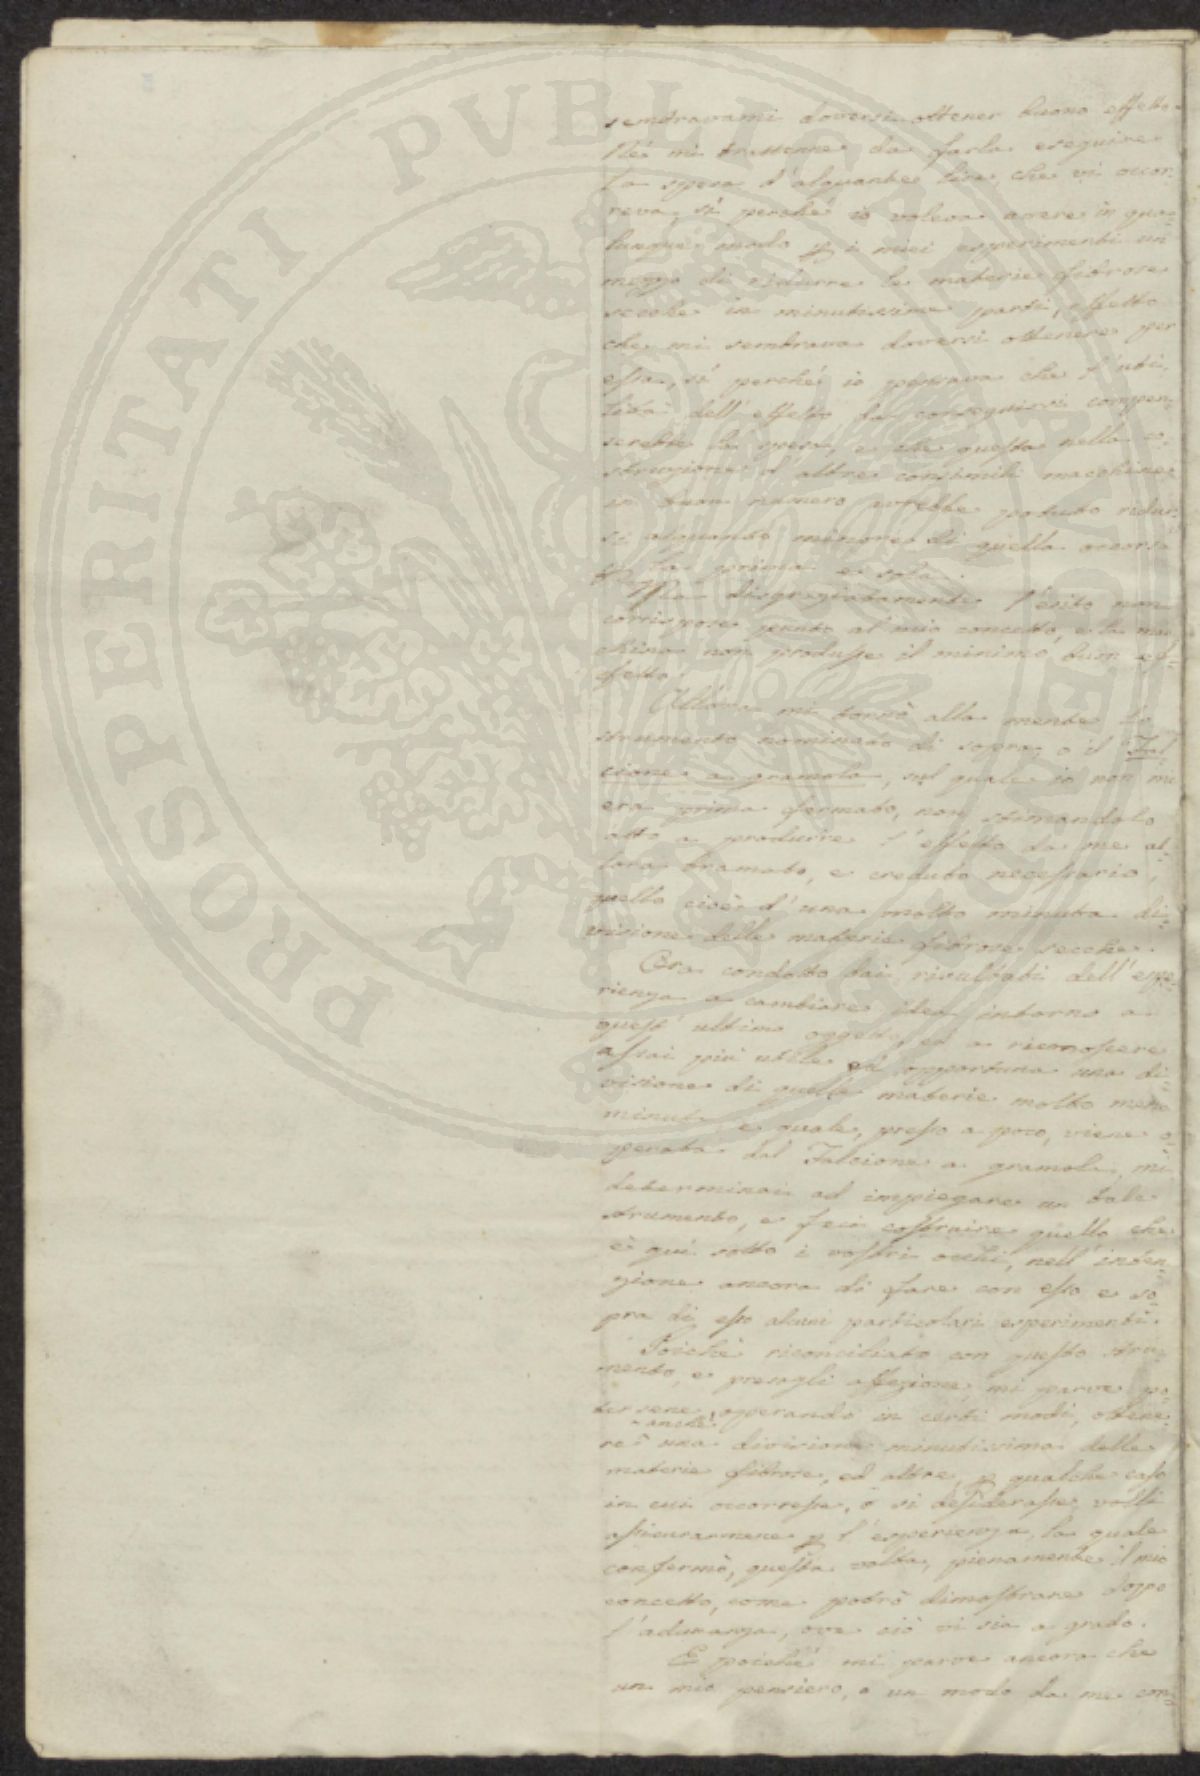 sembravami doversi ottener buono effetto.
Né mi trattenne da farla eseguire
la spesa d'alquante lire, che vi occor-
reva, sì perché io voleva avere in qua-
lunque modo p i miei esperimenti un
mezzo di ridurre le materie fibrose
secche in minutissime parti, effetto
che mi sembrava doversi ottenere per
essa, sì perché io pensava che l'uti-
lità dell'effetto da conseguirsi compen-
serebbe la spesa, e che questa nella co-
struzione d'altre consimili macchine
in buon numero avrebbe potuto ridur-
si alquanto minore di quella occorsa
la prima e sola.
Ma disgraziatamente l'esito non
corrispose punto al mio concetto, e la mac
china non produsse il minimo buon ef-
fetto.
Allora mi tornò alla mente lo
strumento nominato di sopra, o il Fal
cione a gramola, sul quale io non mi
era prima fermato, non stimandolo
atto a produrre l'effetto da me al-
lora bramato, e creduto necessario,
quello cioè d'una molto minuta di-
visione delle materie fibrose secche.
Ora condotto dai risultati dell'espe-
rienza a cambiare idea intorno a
quest'ultimo oggetto, ed a riconoscere
assai più utile ed opportuna una di-
visione di quelle materie molto meno
minuta, e quale, presso a poco, viene o-
perata dal Falcione a gramola, mi
determinai ad impiegare un tale
strumento, e feci costruire quello che
è qui sotto i vostri occhi, nell'inten-
zione ancora di fare con esso e so-
pra di esso alcuni particolari esperimenti.
Poiché riconciliato con questo stru-
mento, e presogli affezione, mi parve po-
tersene, operando in certi modi, ottene-
anche
re una divisione minutissima delle
materie fibrose, ed altre, p qualche caso
in cui occorresse, o si desiderasse, volli
assicurarmene p l'esperienza, la quale
confermò, questa volta, pienamente il mio
concetto, come potrò dimostrare dopo
l'adunanza, ove ciò vi sia a grado.
E poiché mi parve ancora che
un mio pensiero, o un modo da me con-
PROSPERITATI PVBLICAE AVGENDAE